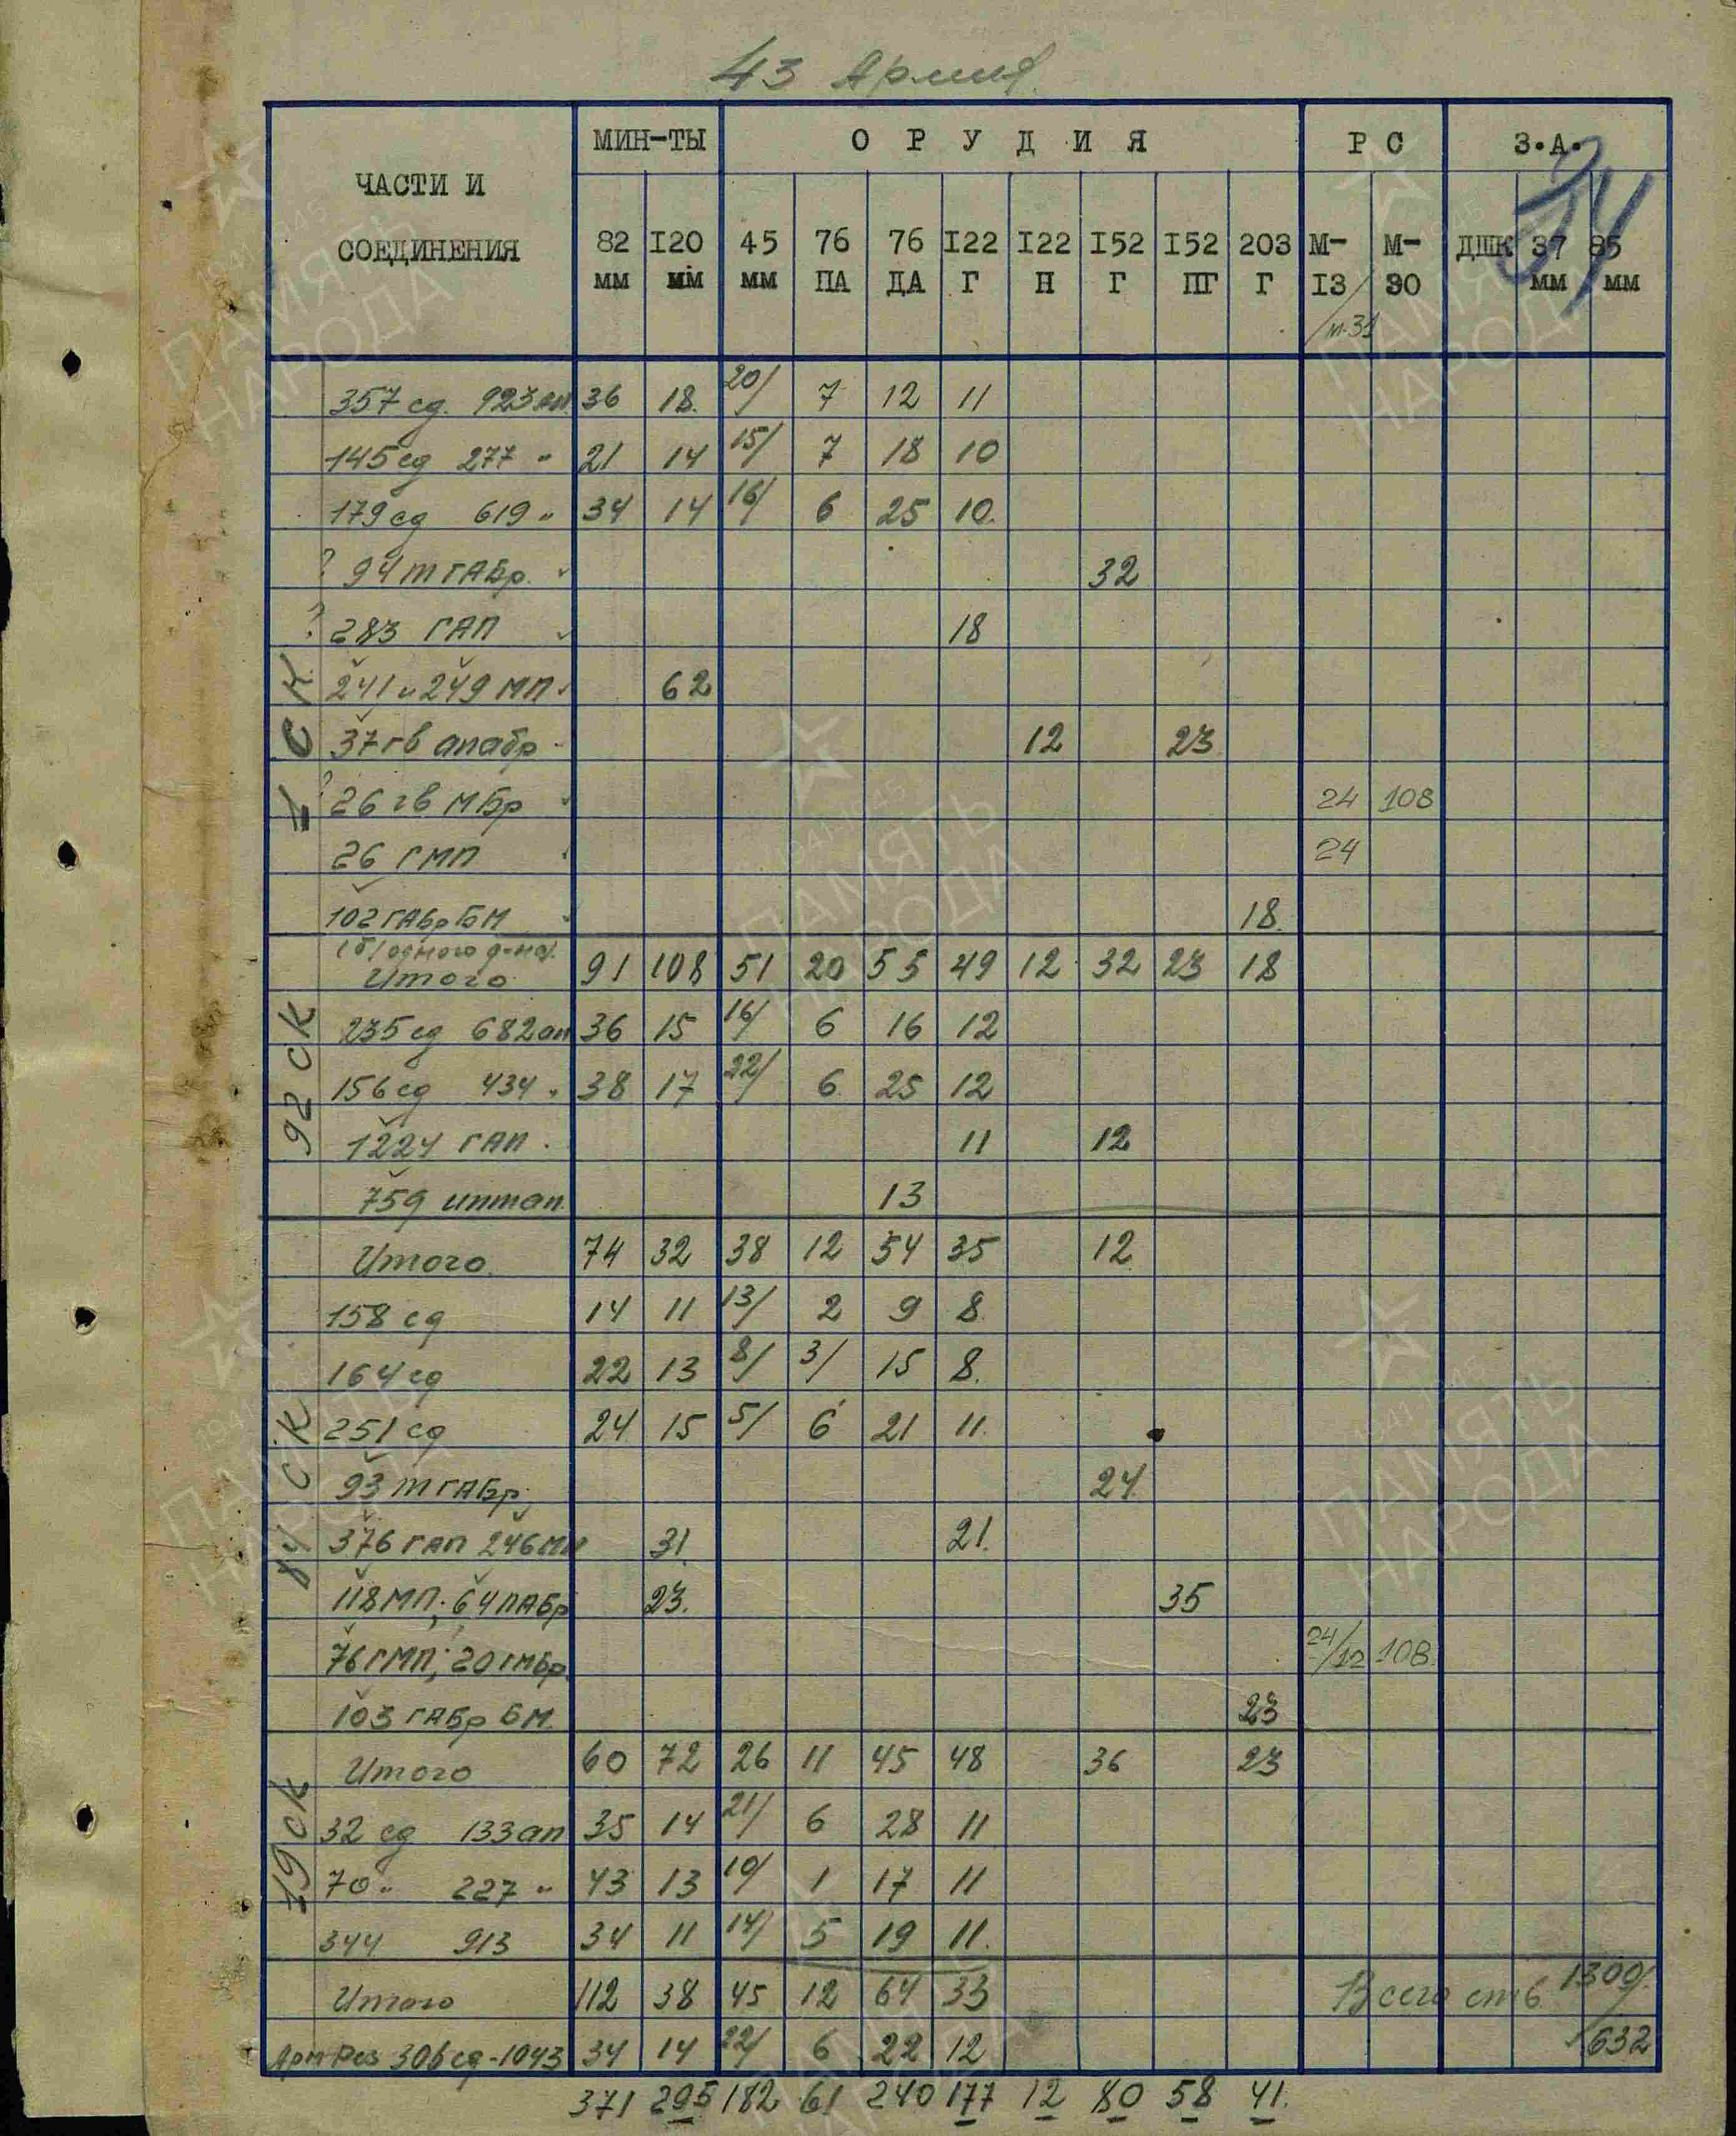 43 Армия.
34
ЧАСТИ И СОЕДИНЕНИЯ МИН-ТЫ ОРУДИЯ РС З.А.
82 мм 120 мм 45 мм 76 ПА 76 ДА 122 Г 122 Н 152 Г 152 ПГ 203 Г М-13/м.31 М-30 ДШК 37 мм 85 мм
357 сд. 923 ап 36 18. 20/ 7 12 11
145 сд 277 " 21 14 15/ 7 18 10
179 сд 619 " 34 14 16/ 6 25 10.
? 94 тГАБр. 32
? 283 ГАП 18
1 СК
241 и 249 МП 62
37 гв апабр 12 23
? 26 гв МБр 24 108
26 ГМП 24
102 ГАБр БМ 18.
(б/одного д-на).
Итого 91 108 51 20 55 49 12 32 23 18
92 СК
235 сд 682 ап 36 15 16/ 6 16 12
156 сд 434 " 38 17 22/ 6 25 12
1224 ГАП. 11 12
759 иптап. 13
Итого. 74 32 38 12 54 35 12
158 сд 14 11 13/ 2 9 8.
164 сд 22 13 8/ 3/ 15 8.
251 сд 24 15 5/ 6 21 11.
84 СК
93 тГАБр. 24
376 ГАП 246 МП 31. 21.
118 МП; 64 ПАБр 23. 35
76 ГМП; 20 гМБр. 24/12 108.
103 ГАБр БМ. 23
Итого 60 72 26 11 45 48 36 23
19 СК
32 сд 133 ап 35 14 21/ 6 28 11
70 " 227 " 43 13 10/ 1 17 11
344 913 34 11 14/ 5 19 11.
Итого 112 38 45 12 64 33 Всего ств 1300/
Арт Рез 306 сд-1043 34 14 22/ 6 22 12 632
371 295 182 61 240 177 12 80 58 41.
ПАМЯТЬ
НАРОДА
1941-1945